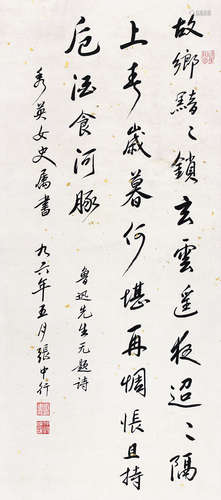 故鄉黯〻鎖玄雲遙夜迢〻隔
上春歲暮何堪再惆悵且持
卮酒食河豚
魯迅先生无題诗
秀英女史属書 九六年五月張中行